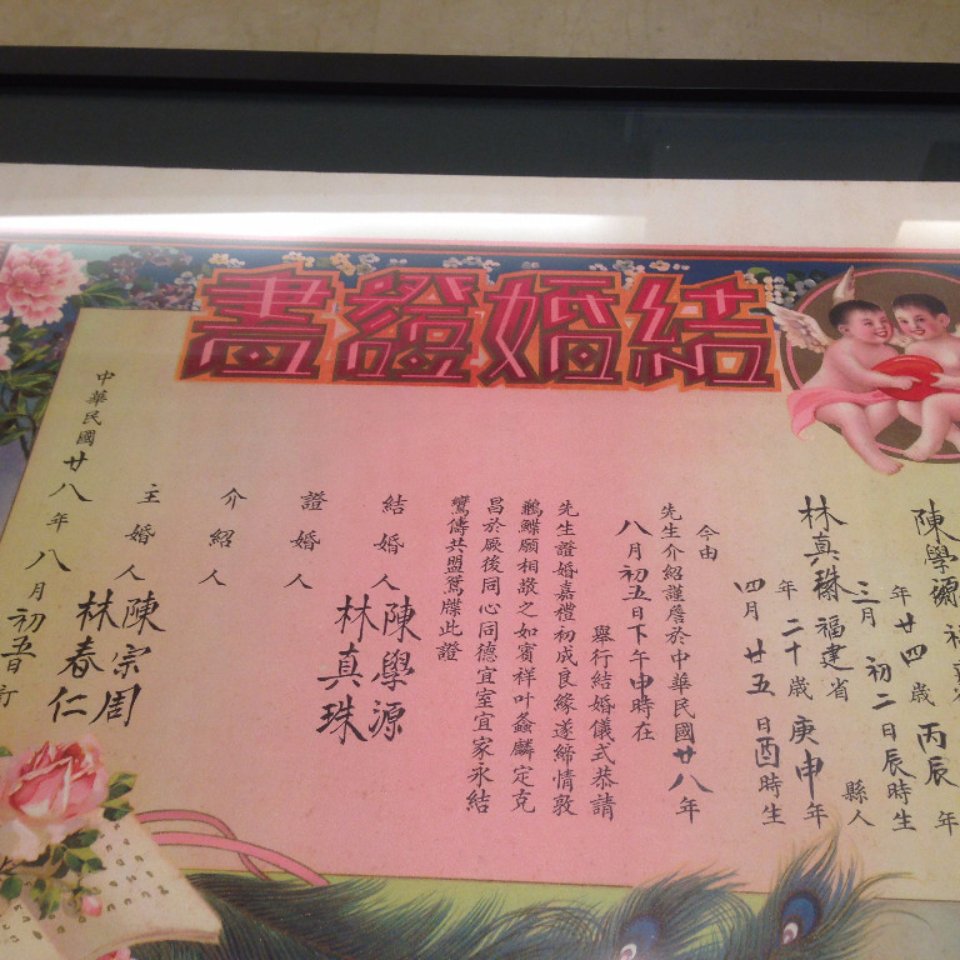 結婚證書
陳學源福建
年廿四歲丙辰年
三月初二日辰時生
林真珠福建省縣人
年二十歲庚申年
四月廿五日酉時生
今由
先生介紹謹詹於中華民國廿八年
八月初五日下午申時在
舉行結婚儀式恭請
先生證婚嘉禮初成良緣遂締情敦
鶼鰈願相敬之如賓祥叶螽麟定克
昌於厥後同心同德宜室宜家永結
鸞儔共盟鴛牒此證
結婚人陳學源
林真珠
證婚人
介紹人
主婚人陳宗周
林春仁
中華民國廿八年八月初五日訂